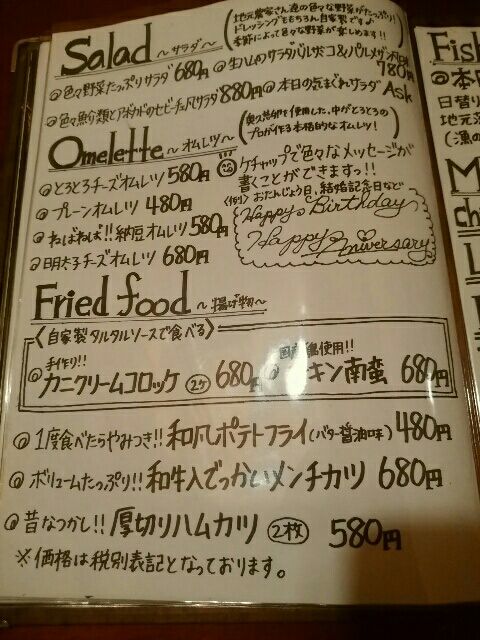 Salad ～サラダ～
地元農家さん達の色々な野菜がたっぷり!
ドレッシングももちろん自家製です♪
季節によって色々な野菜が楽しめます!!
◎色々野菜たっぷりサラダ 680円
◎生ハムのサラダバルサミコ&パルメザン 780円
◎色々魚介類とアボカドのセビーチェ風サラダ 880円
◎本日の気まぐれサラダ Ask
Omelette ～オムレツ～
使用した、中がとろとろの
プロが作る本格的なオムレツ!
◎とろとろチーズオムレツ 580円
◎プレーンオムレツ 480円
◎ねばねば!!納豆オムレツ 580円
◎明太子チーズオムレツ 680円
ケチャップで色々なメッセージが
書くことができますっ!!
〈例〉おたんじょう日、結婚記念日など
Happy Birthday
Happy Anniversary
Fried food ～揚げ物～
〈自家製タルタルソースで食べる〉
◎手作り!!
カニクリームコロッケ 2ヶ 680円
鶏使用!!
キン南蛮 680円
◎1度食べたらやみつき!!和風ポテトフライ(バター醤油味) 480円
◎ボリュームたっぷり!!和牛入でっかいメンチカツ 680円
◎昔なつかし!!厚切りハムカツ 2枚 580円
※価格は税別表記となっております。
Fis
◎本
日替り
地元
(漁の
M
chi